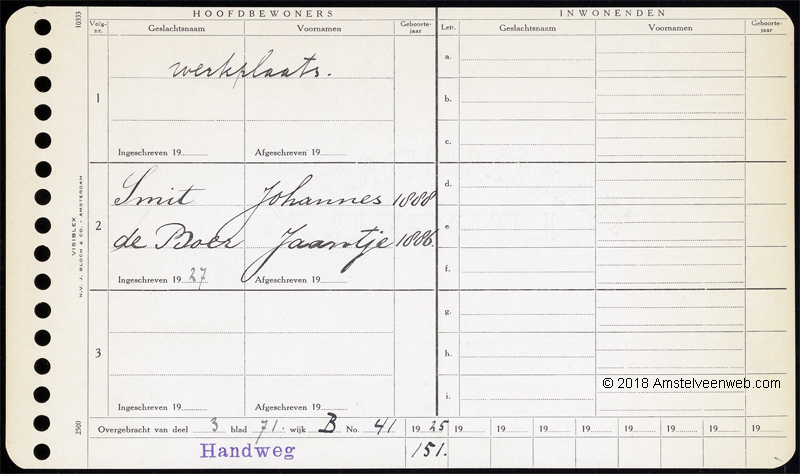 HOOFDBEWONERS INWONENDEN
10333 Volg-nr. Geslachtsnaam Voornamen Geboorte-jaar Lett. Geslachtsnaam Voornamen Geboorte-jaar
werkplaats.
a.
1
b.
c.
Ingeschreven 19 Afgeschreven 19
Smit Johannes 1888
d.
2
e.
de Boer Jaantje 1886.
f.
Ingeschreven 19 27 Afgeschreven 19
VISIBLEX
N.V. J. BLOCH & CO. - AMSTERDAM
g.
3
h.
i.
© 2018 Amstelveenweb.com
Ingeschreven 19 Afgeschreven 19
2500
Overgebracht van deel 3 blad 71. wijk B No. 41 19 25 19 19 19 19 19 19 19 19
Handweg 151.